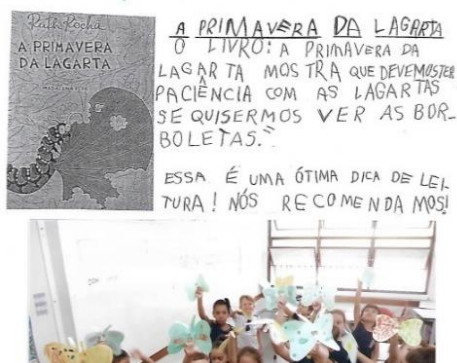 Ruth Rocha
A PRIMAVERA
DA LAGARTA
A PRIMAVERA DA LAGARTA
O LIVRO: A PRIMAVERA DA
LAGARTA MOSTRA QUE DEVEMOS TER
PACIÊNCIA COM AS LAGARTAS
SE QUISERMOS VER AS BOR-
BOLETAS."
ESSA É UMA ÓTIMA DICA DE LEI-
TURA! NÓS RECOMENDAMOS!